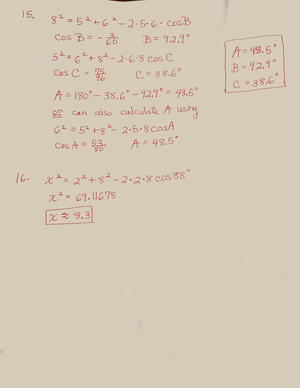 15. 8² = 5² + 6² - 2·5·6·cosB
cos B = - 3/60 B = 92.9°
5² = 6² + 8² - 2·6·8 cos C
cos C = 75/96 C = 38.6°
A = 180° - 38.6° - 92.9° = 48.5°
or can also calculate A using
6² = 5² + 8² - 2·5·8 cosA
cos A = 53/80 A = 48.5°
A = 48.5°
B = 92.9°
C = 38.6°
16. x² = 2² + 8² - 2·2·8 cos 98°
x² = 69.11678
x ≈ 8.3